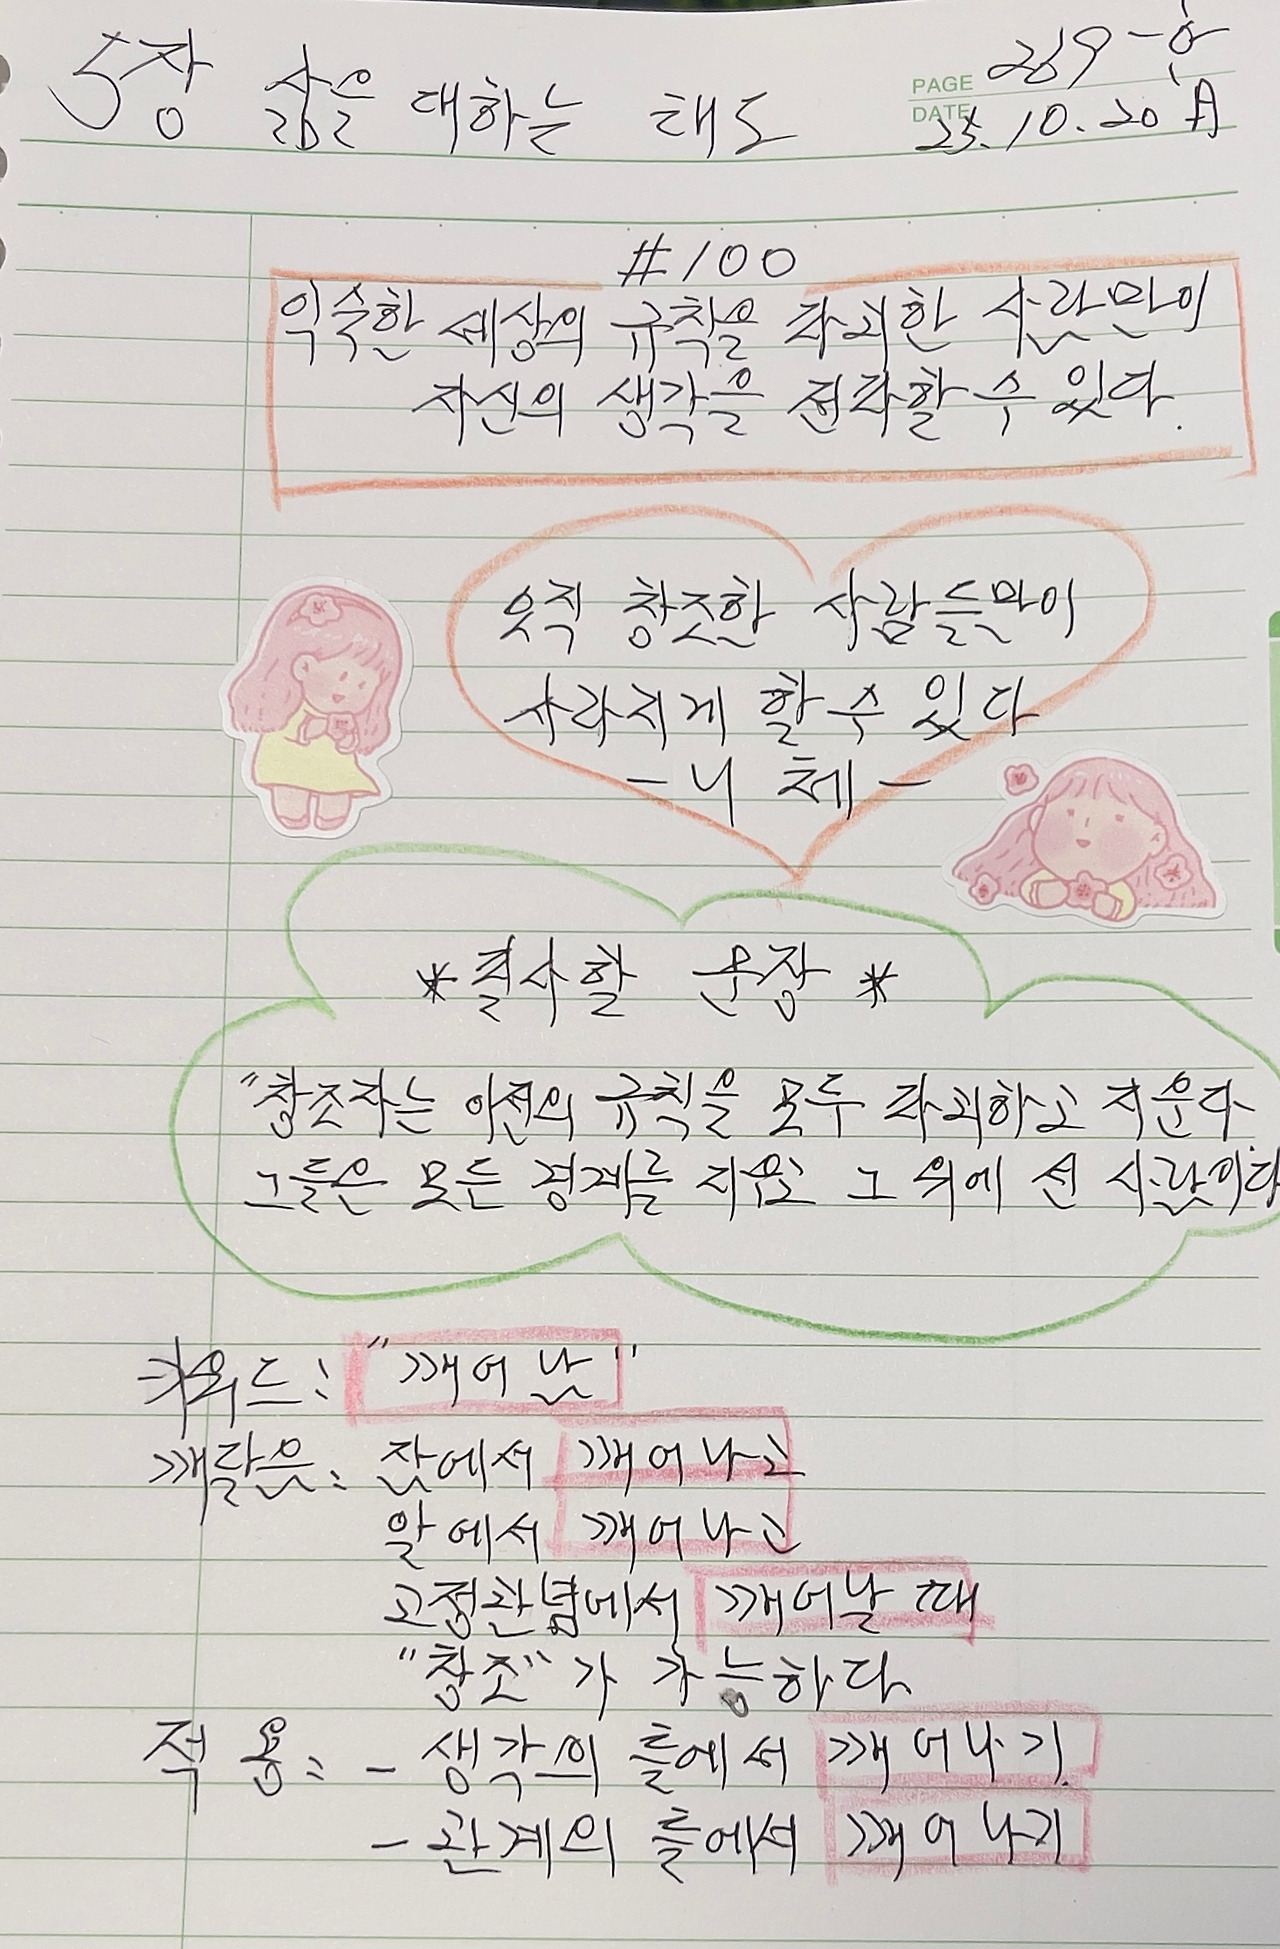 5장 삶을 대하는 태도
PAGE 269-하
DATE 25.10.20 A
#100
익숙한 세상의 규칙을 파괴한 사람만이
자신의 생각을 전파할 수 있다.
오직 창조한 사람들만이
사라지게 할 수 있다
-니체-
*필사할 문장*
"창조자는 이전의 규칙을 모두 파괴하고 지운다
그들은 모든 경계를 지우고 그 위에 선 사람이다
키워드: "깨어남"
깨달음: 잠에서 깨어나고
알에서 깨어나고
고정관념에서 깨어날 때
"창조"가 가능하다
적용: - 생각의 틀에서 깨어나기.
- 관계의 틀에서 깨어나기